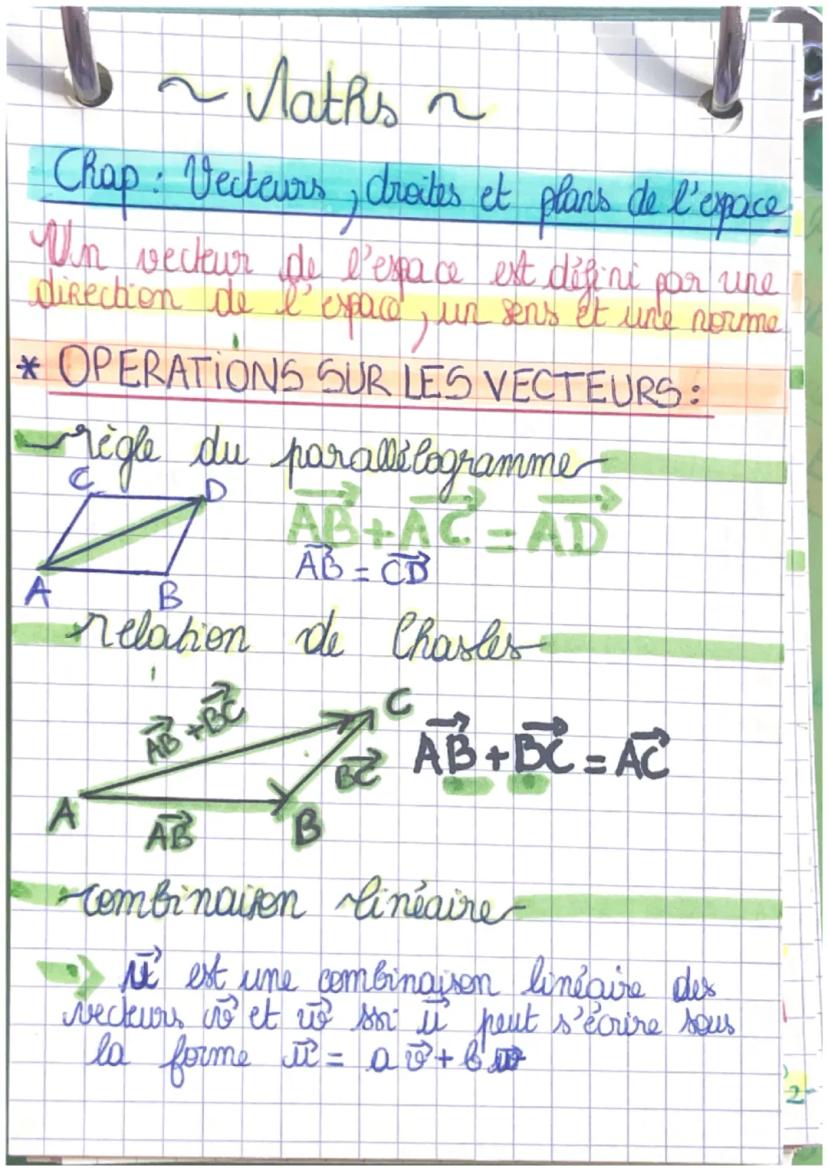 ~ Maths ~
Chap : Vecteurs, droites et plans de l'espace
Un vecteur de l'espace est défini par une
direction de l'espace, un sens et une norme
* OPERATIONS SUR LES VECTEURS :
règle du parallélogramme
C D
AB→ + AC→ = AD→
AB→ = CD→
A B
relation de Chasles
AB→ + BC→
C
AB→ + BC→ = AC→
BC→
A
AB→
B
combinaison linéaire
→ u→ est une combinaison linéaire des
vecteurs v→ et w→ ssi u→ peut s'écrire sous
la forme u→ = a v→ + b w→
2